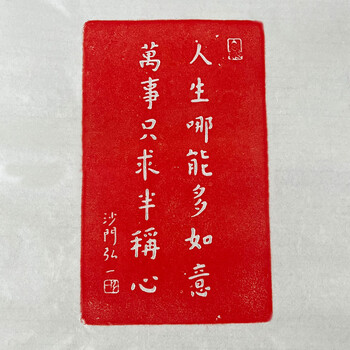 人生哪能多如意
萬事只求半稱心
沙門弘一